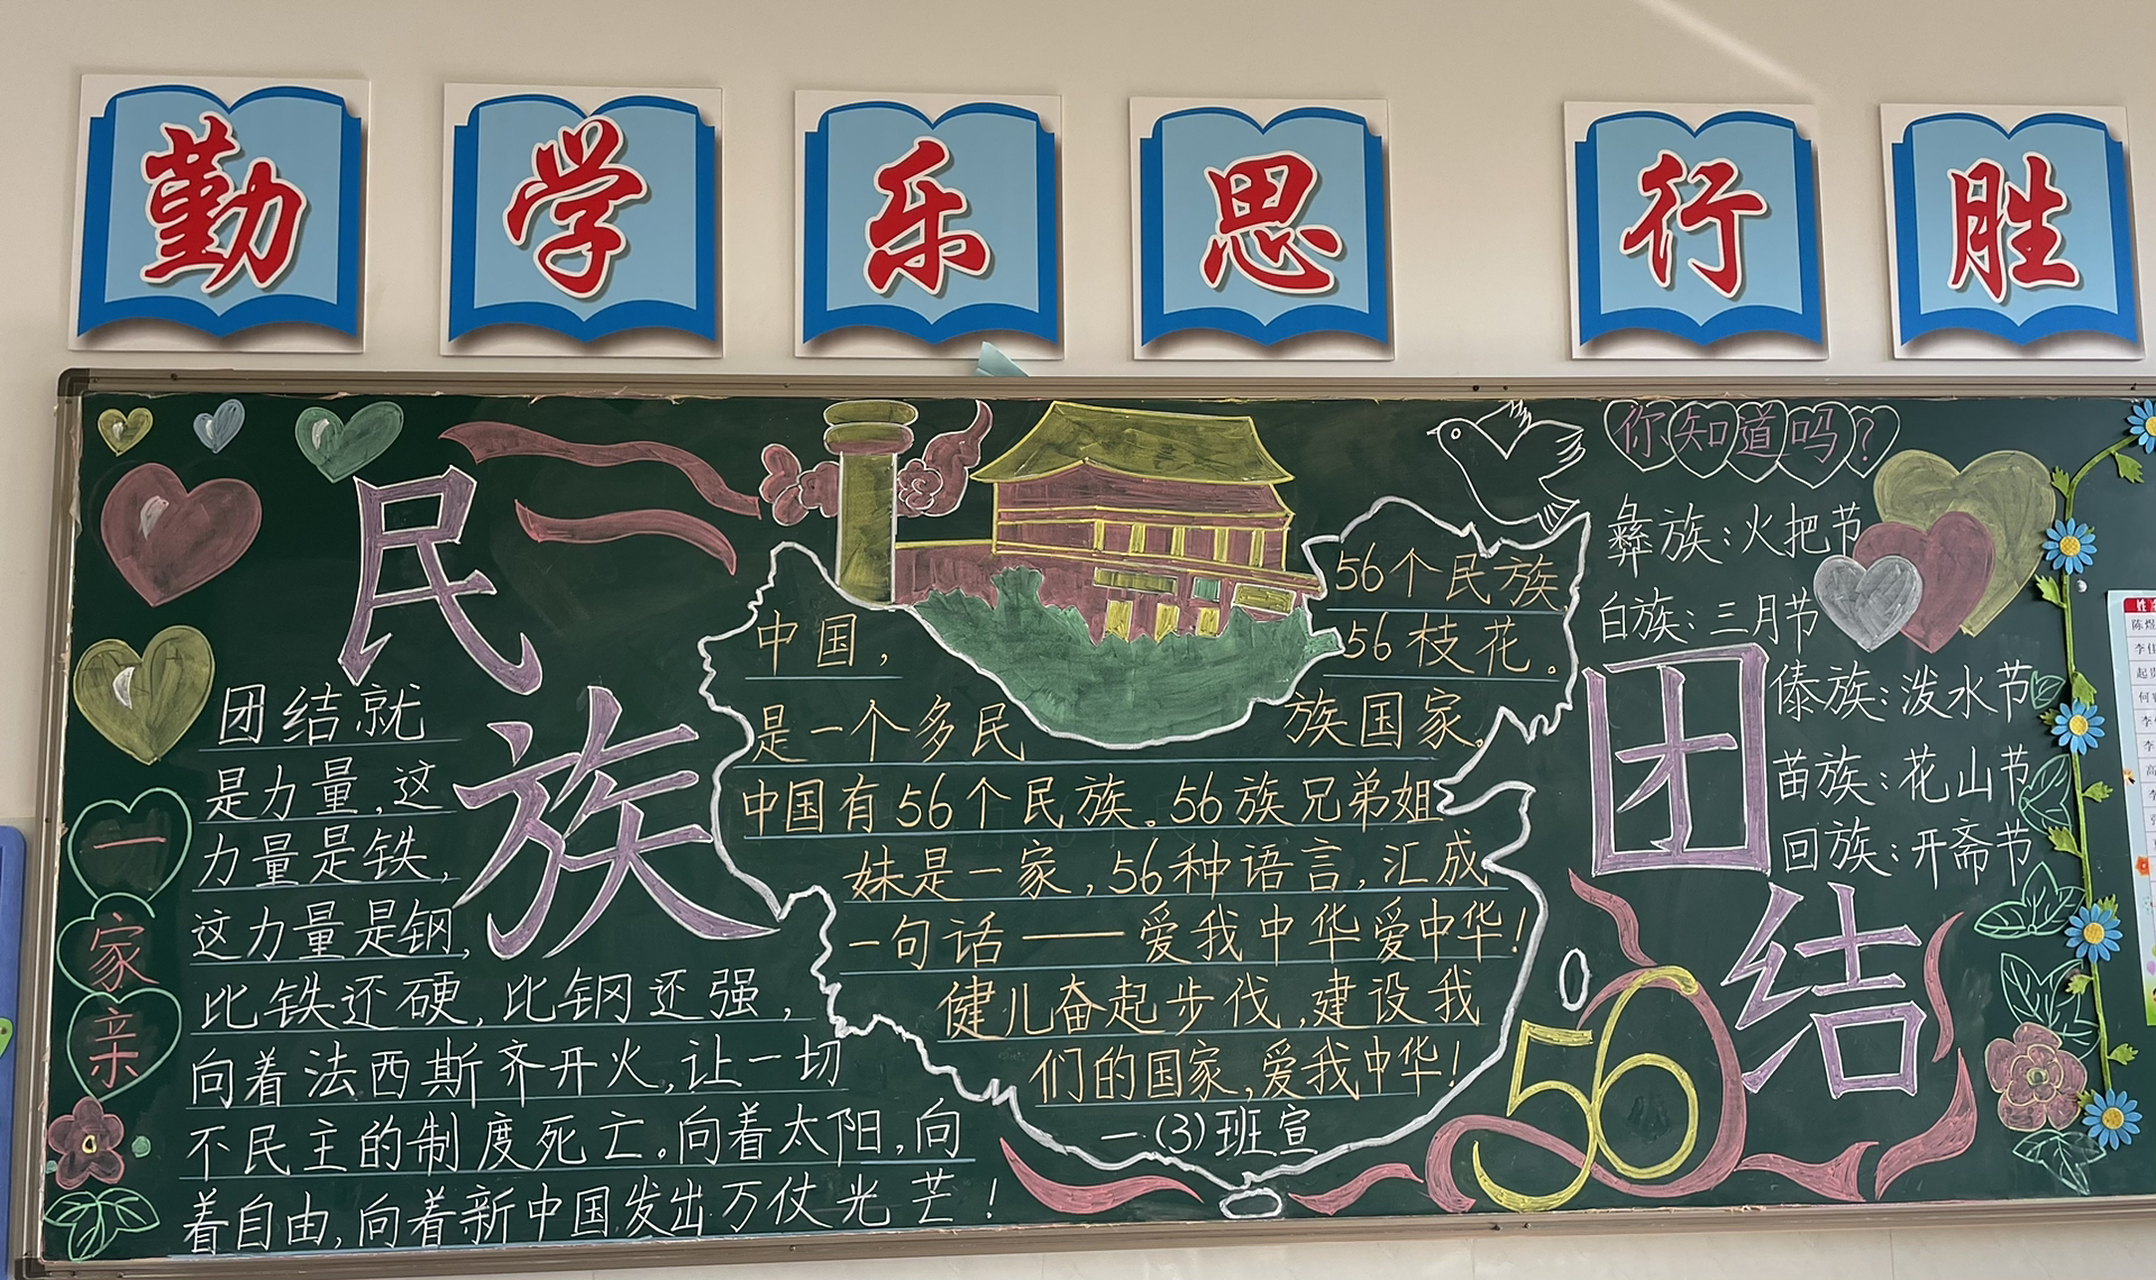 勤学乐思 行胜
民族
团结就
是力量,这
力量是铁,
这力量是钢,
比铁还硬,比钢还强,
向着法西斯齐开火,让一切
不民主的制度死亡。向着太阳,向
着自由,向着新中国发出万仗光芒!
一家亲
56个民族
56枝花。
中国,
是一个多民族国家。
中国有56个民族。56族兄弟姐
妹是一家,56种语言,汇成
一句话——爱我中华爱中华!
健儿奋起步伐,建设我
们的国家,爱我中华!
一(3)班宣
你知道吗?
彝族:火把节
白族:三月节
傣族:泼水节
苗族:花山节
回族:开斋节
团结
56